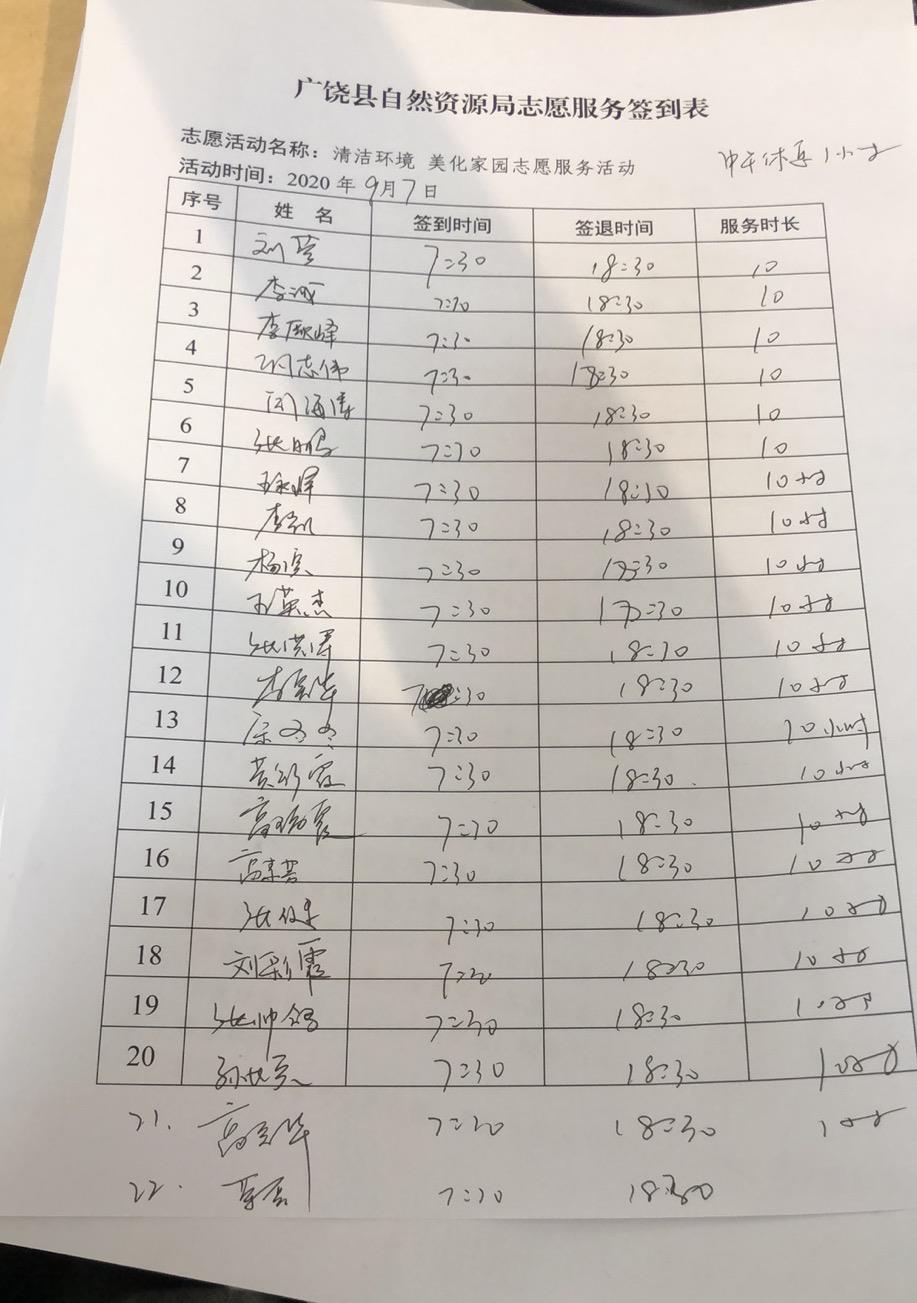 广饶县自然资源局志愿服务签到表
志愿活动名称：清洁环境 美化家园志愿服务活动 中午休息1小时
活动时间：2020年9月7日
序号 姓名 签到时间 签退时间 服务时长
1 刘莹 7:30 18:30 10
2 7:30 18:30 10
3 7:30 18:30 10
4 志伟 7:30 18:30 10
5 海涛 7:30 18:30 10
6 张鹏 7:30 18:30 10
7 7:30 18:30 10小时
8 李凯 7:30 18:30 10小时
9 杨滨 7:30 18:30 10小时
10 王英杰 7:30 18:30 10小时
11 张洪涛 7:30 18:30 10小时
12 7:30 18:30 10小时
13 冬冬 7:30 18:30 10小时
14 7:30 18:30 10小时
15 7:30 18:30 10小时
16 7:30 18:30 10小时
17 7:30 18:30 10小时
18 刘彩霞 7:30 18:30 10小时
19 张帅 7:30 18:30 10小时
20 7:30 18:30 10小时
21. 7:30 18:30
22. 7:30 18:30